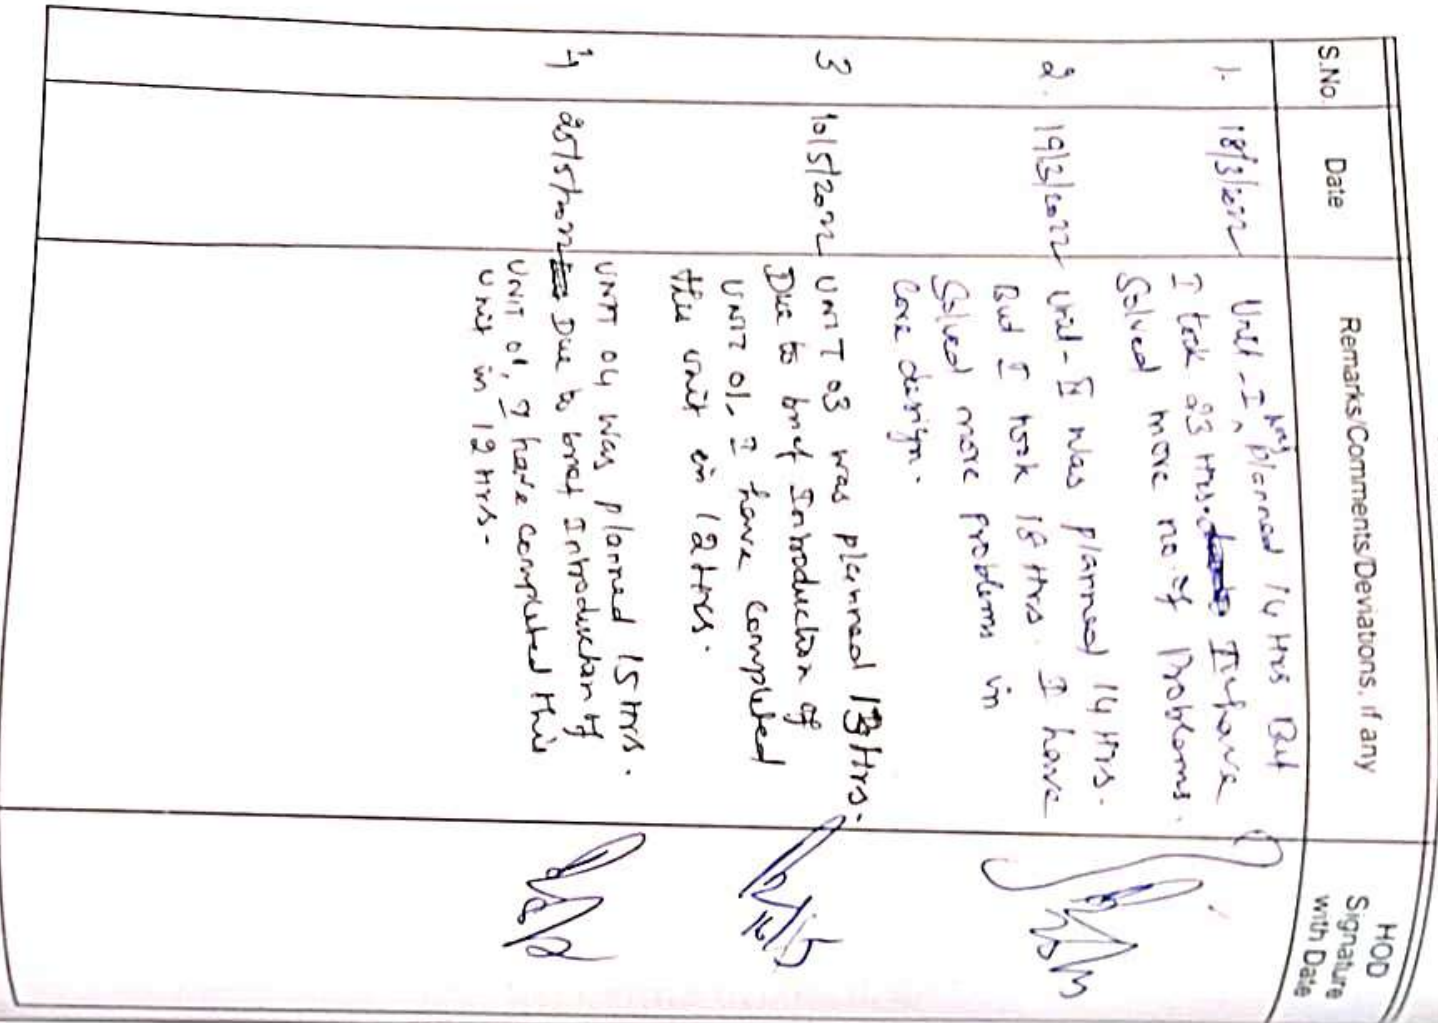 S.No. Date Remarks/Comments/Deviations, if any HOD
Signature
with Date
1. 18/3/2022 Unit-I, has planned 14 Hrs But
I took 23 Hrs. I have
Solved more no. of Problems.
2. 19/3/2022 Unit-II was planned 14 Hrs.
But I took 18 Hrs. I have
Solved more problems in
Core design.
3 10/5/2022 UNIT 03 was planned 13 Hrs.
Due to brief Introduction of
UNIT 01, I have completed
this unit in 12 Hrs.
4 25/5/2022 UNIT 04 was planned 15 Hrs.
Due to brief Introduction of
UNIT 01, I have completed this
Unit in 12 Hrs.